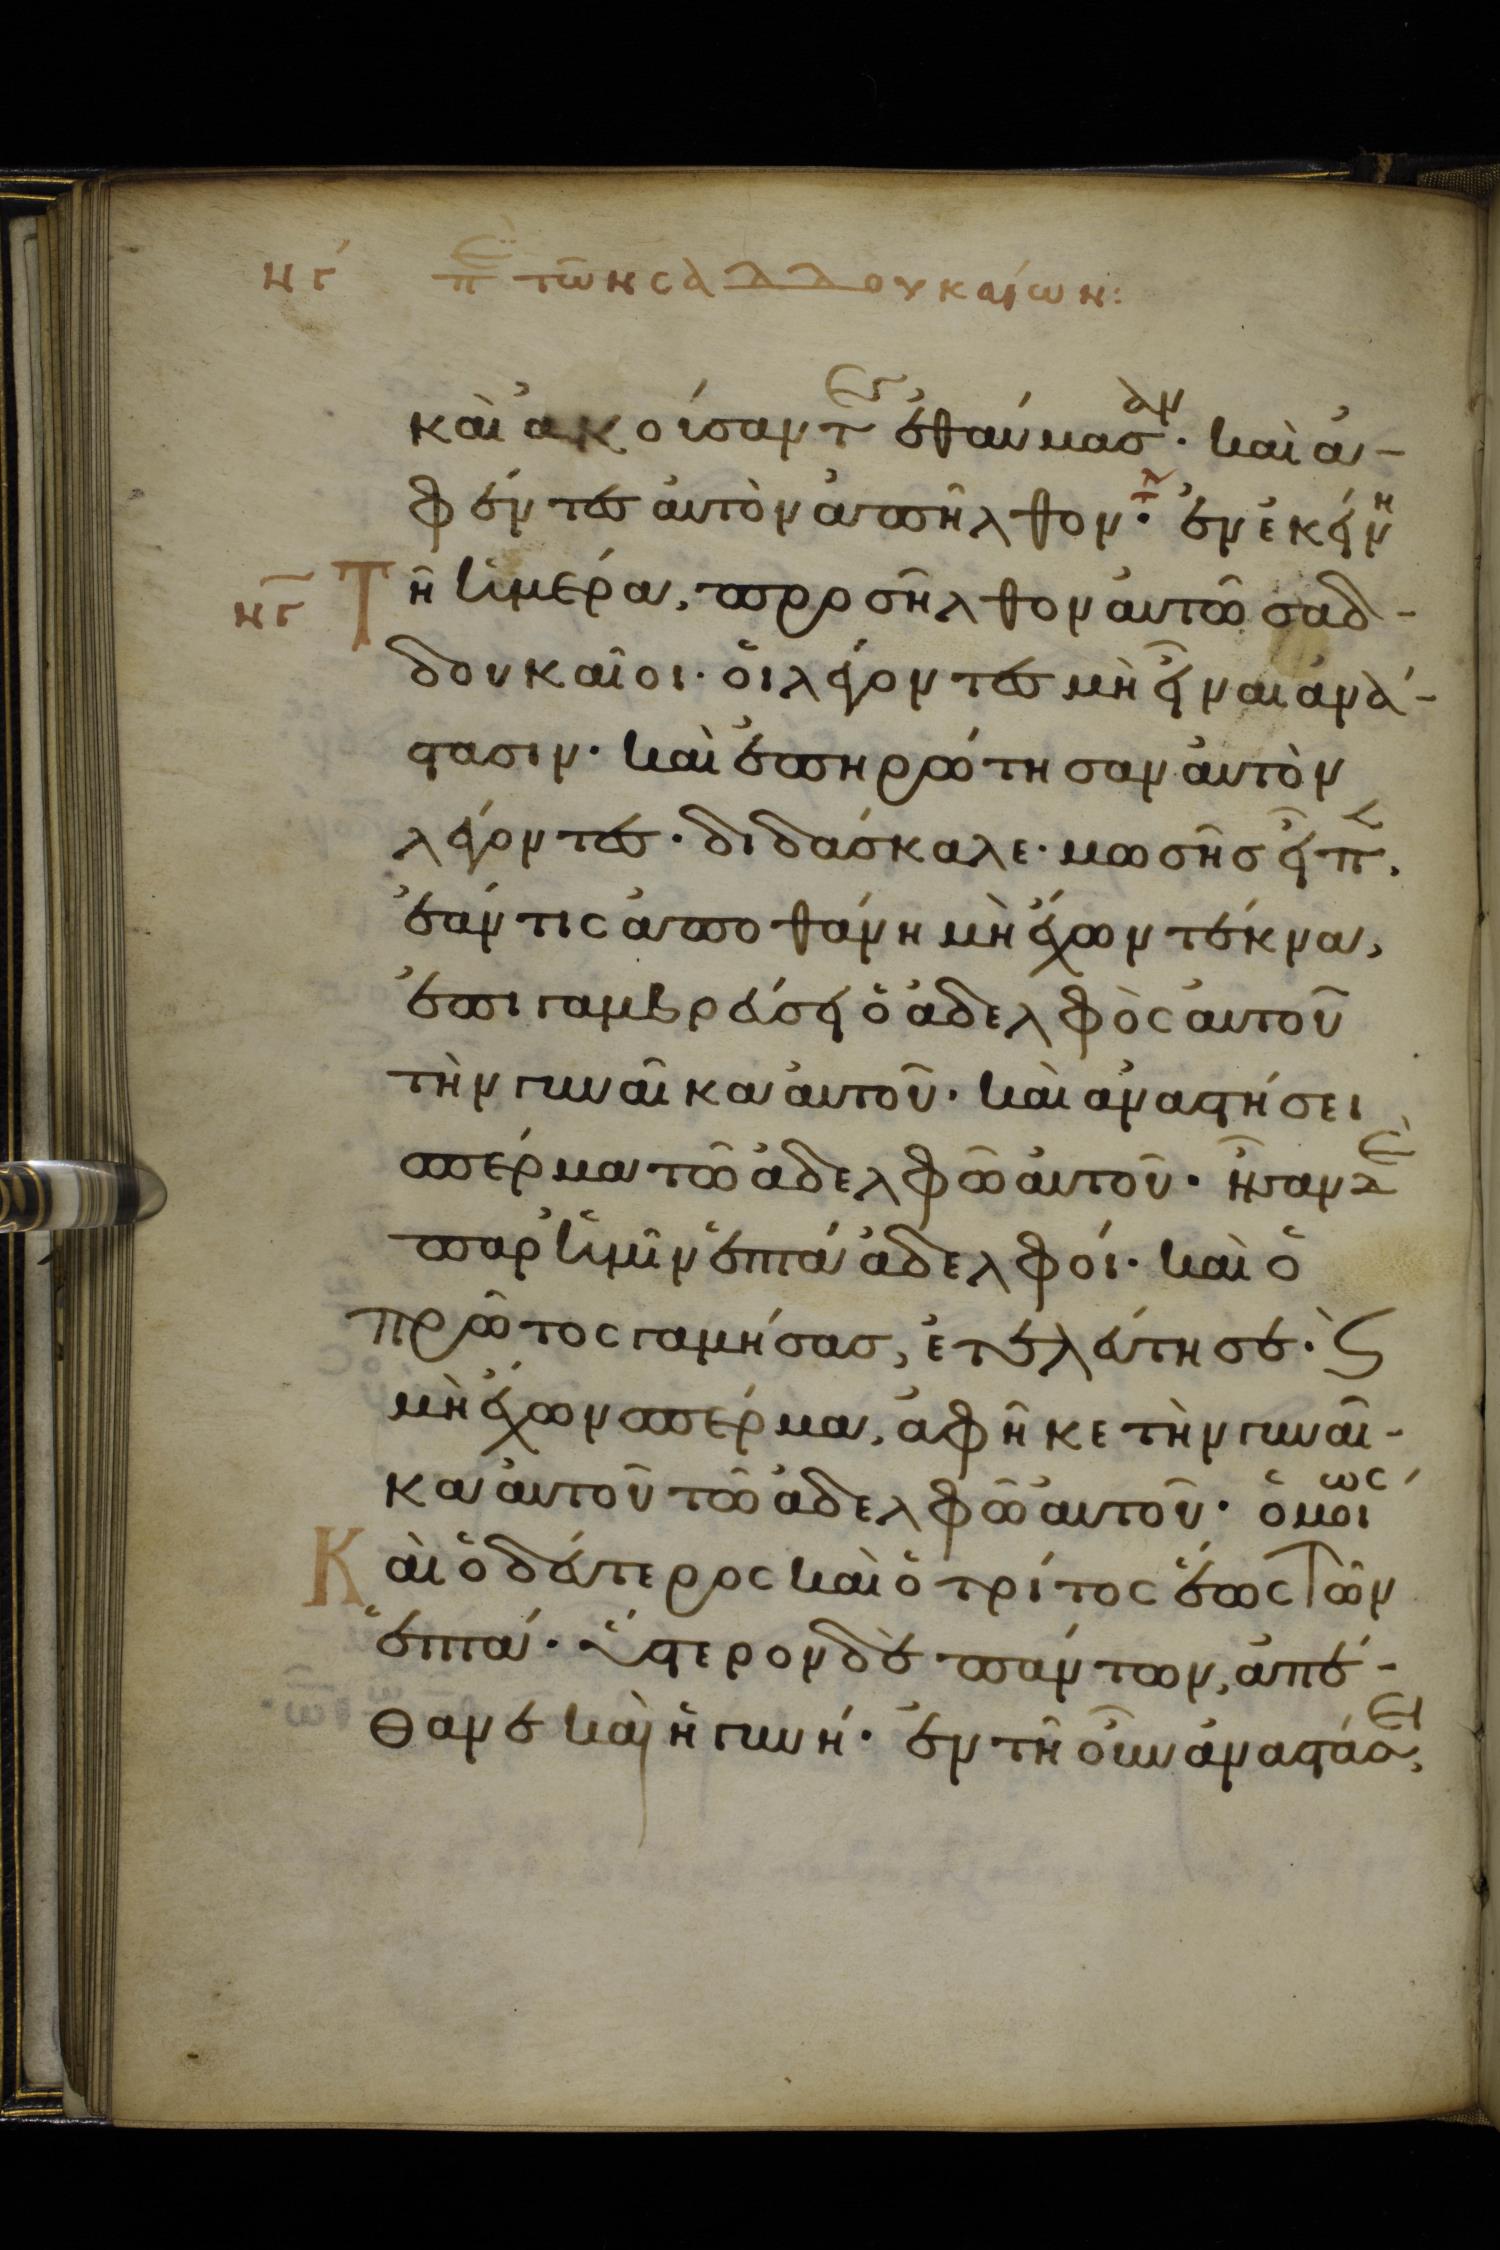 νγ´ πε τῶν σαδδουκαίων:
καὶ ἀκούσαντες ἐθαύμασαν· καὶ ἀ-
φέντες αὐτὸν ἀπῆλθον· ἐν ἐκείνη
νγ Τῆ ἡμέρα, προσῆλθον αὐτῶ σαδ-
δουκαῖοι· οἱ λέγοντες μὴ εἶναι ἀνά-
στασιν· καὶ ἐπηρώτησαν αὐτὸν
λέγοντες· διδάσκαλε· μωσῆς εἶπεν,
ἐάν τις ἀποθάνη μὴ ἔχων τέκνα,
ἐπιγαμβρεύσει ὁ ἀδελφὸς αὐτοῦ
τὴν γυναῖκα αὐτοῦ· καὶ ἀναστήσει
σπέρμα τῶ ἀδελφῶ αὐτοῦ· ἦσαν δὲ
παρ' ἡμῖν ἑπτὰ ἀδελφοί· καὶ ὁ
πρῶτος γαμήσας, ἐτελεύτησε· Ϛ
μὴ ἔχων σπέρμα, ἀφῆκε τὴν γυναῖ-
κα αὐτοῦ τῶ ἀδελφῶ αὐτοῦ· ὁμοίως
Καὶ ὁ δεύτερος καὶ ὁ τρίτος ἕως τῶν
ἑπτά· ὕστερον δὲ πάντων, ἀπέ-
θανε καὶ ἡ γυνή· ἐν τῆ οὖν ἀναστάσει,